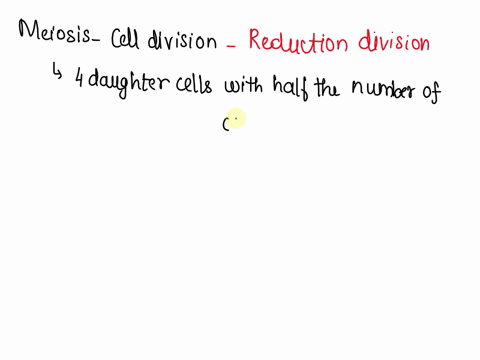 Meiosis - Cell division - Reduction division
↳ 4 daughter cells with half the number of
c